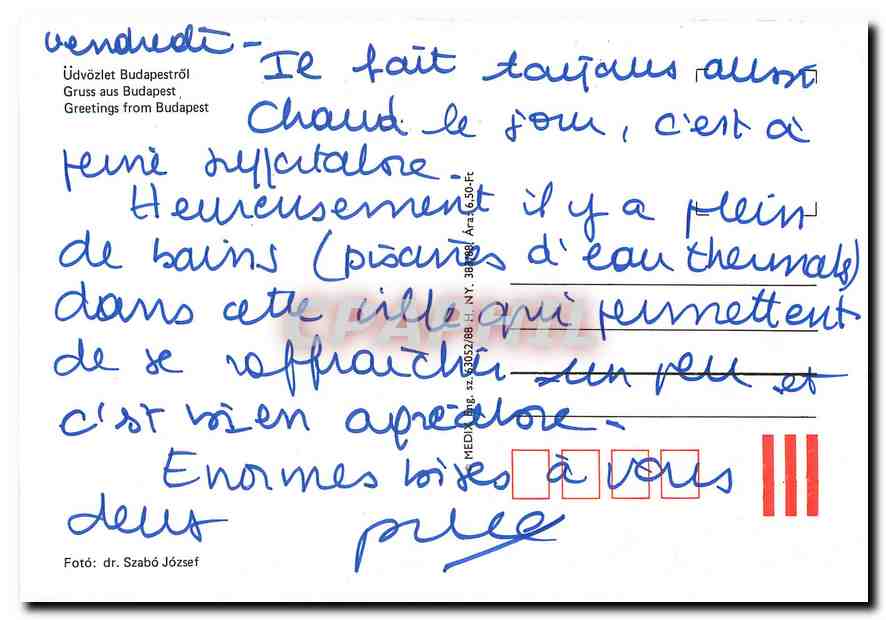 vendredi -
Üdvözlet Budapestről
Gruss aus Budapest
Greetings from Budapest
Il fait toujours aussi
Chaud le jour, c'est à
peine supportable.
Heureusement il y a plein
de bains (piscines d'eau thermale)
dans cette ville qui permettent
de se raffraîchir un peu et
c'est bien agréable.
Enormes bises à vous
deux
Fotó: dr. Szabó József
CPAPHIL
MEDIX Eng. sz. 63052/88 H. NY. Ára: 6,50-Ft